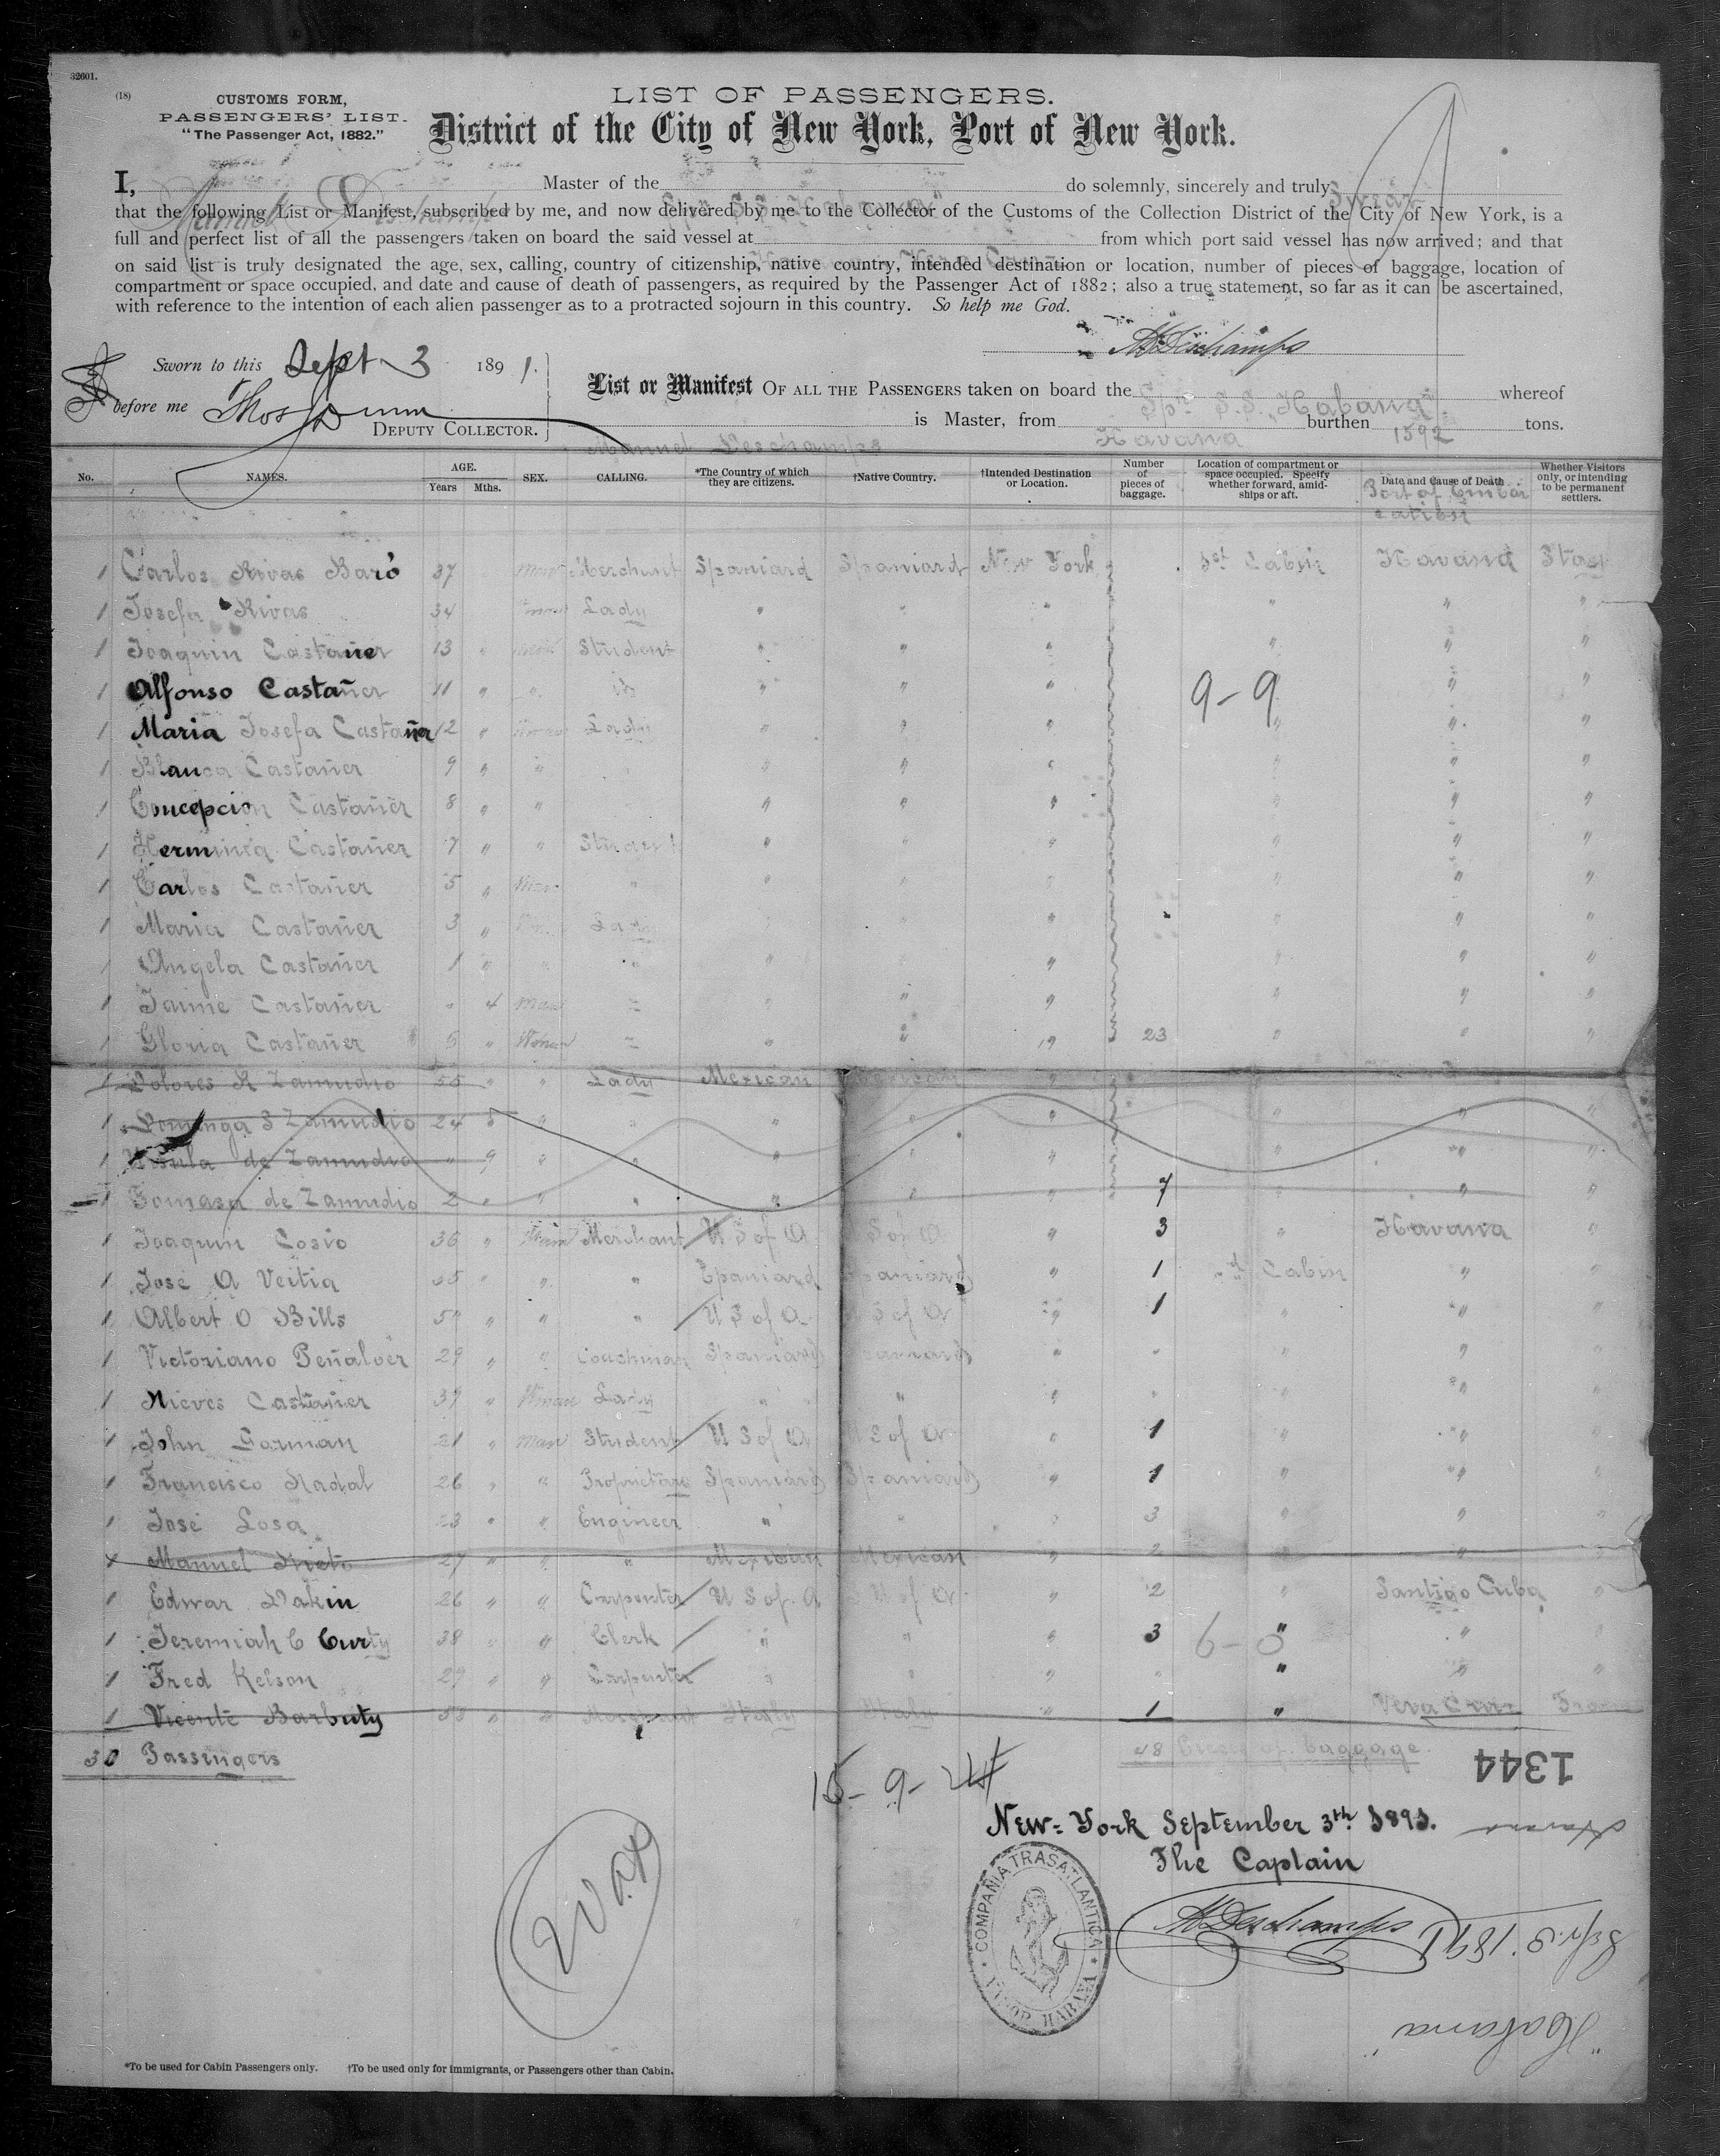 32601.
(18)
CUSTOMS FORM,
PASSENGERS' LIST.
"The Passenger Act, 1882."
LIST OF PASSENGERS.
District of the City of New York, Port of New York.
I, Manuel Deschamps Master of the Spn S.S. "Habana" do solemnly, sincerely and truly Swear
that the following List or Manifest, subscribed by me, and now delivered by me to the Collector of the Customs of the Collection District of the City of New York, is a
full and perfect list of all the passengers taken on board the said vessel at from which port said vessel has now arrived; and that
on said list is truly designated the age, sex, calling, country of citizenship, native country, intended destination or location, number of pieces of baggage, location of
compartment or space occupied, and date and cause of death of passengers, as required by the Passenger Act of 1882; also a true statement, so far as it can be ascertained,
with reference to the intention of each alien passenger as to a protracted sojourn in this country. So help me God.
M Deschamps
Sworn to this Sept 3 1891.
before me Thos Dunn
DEPUTY COLLECTOR.
List or Manifest OF ALL THE PASSENGERS taken on board the Spn S.S. "Habana" whereof
Manuel Deschamps is Master, from Havana burthen 1592 tons.
No. NAMES. AGE. Years Mths. SEX. CALLING. *The Country of which they are citizens. †Native Country. †Intended Destination or Location. Number of pieces of baggage. Location of compartment or space occupied. Specify whether forward, amidships or aft. Date and Cause of Death Whether Visitors only, or intending to be permanent settlers.
Port of Embarcation
1 Carlos Rivas Baró 37 man Merchant Spaniard Spaniard New York 1st Cabin Havana Stay
1 Josefa Rivas 34 " Lady " " " " " "
1 Joaquin Castañer 13 " Student " " " " " "
1 Alfonso Castañer 11 " " " " " " 9-9 " "
1 Maria Josefa Castañer 12 " Lady " " " " " "
1 Blanca Castañer 9 " " " " " " " "
1 Concepcion Castañer 8 " " " " " " " "
1 Herminia Castañer 7 " " Student " " " " " "
1 Carlos Castañer 5 " man " " " " " " "
1 Maria Castañer 3 " Lady " " " " " "
1 Angela Castañer 1 " " " " " " " " "
1 Jaime Castañer " 4 man " " " " " " "
1 Gloria Castañer 5 " Woman " " " " 23 " " "
1 Dolores R Zamudio 55 " " Lady Mexican Mexican "
1 Dominga S Zamudio 24 " " " " " " " "
1 Ursula de Zamudio " 9 " " " " " " " "
1 Tomasa de Zamudio 2 " " " " " " 7 " " "
1 Joaquin Cosio 36 " man Merchant U S of A U S of A " 3 " Havana "
1 José A Veitia " " " Spaniard Spaniard " 1 2d Cabin " "
1 Albert O Bills " " " U S of A U S of A " 1 " " "
1 Victoriano Peñalver 29 " " Coachman Spaniard Spaniard " " " " "
1 Nieves Castañer 39 " Woman Lady " " " " " " "
1 John Gorman 21 " man Student U S of A U S of A " 1 " " "
1 Francisco Nadal 26 " " Proprietary Spaniard Spaniard " 1 " " "
1 José Losa 23 " " Engineer " " " 3 " " "
1 Manuel Nieto 27 " " " Mexican Mexican " 2 " " "
1 Edwar Dakin 26 " " Carpenter U S of A U S of A " 2 " Santigo Cuba "
1 Jeremiah C Curty 38 " " Clerk " " " 3 6-0 " " "
1 Fred Kelson 29 " " Carpenter " " " " " " "
1 Vicente Barbuty 53 " " Merchant Italy Italy " 1 " Vera Cruz
30 Passengers
48 Pieces of baggage
1344
15-9-24
New-York September 3th 1891.
The Captain
M Deschamps
COMPAÑIA TRASATLANTICA
VAPOR HABANA
Havana
Sept. 3. 1891
"Habana"
*To be used for Cabin Passengers only. †To be used only for immigrants, or Passengers other than Cabin.